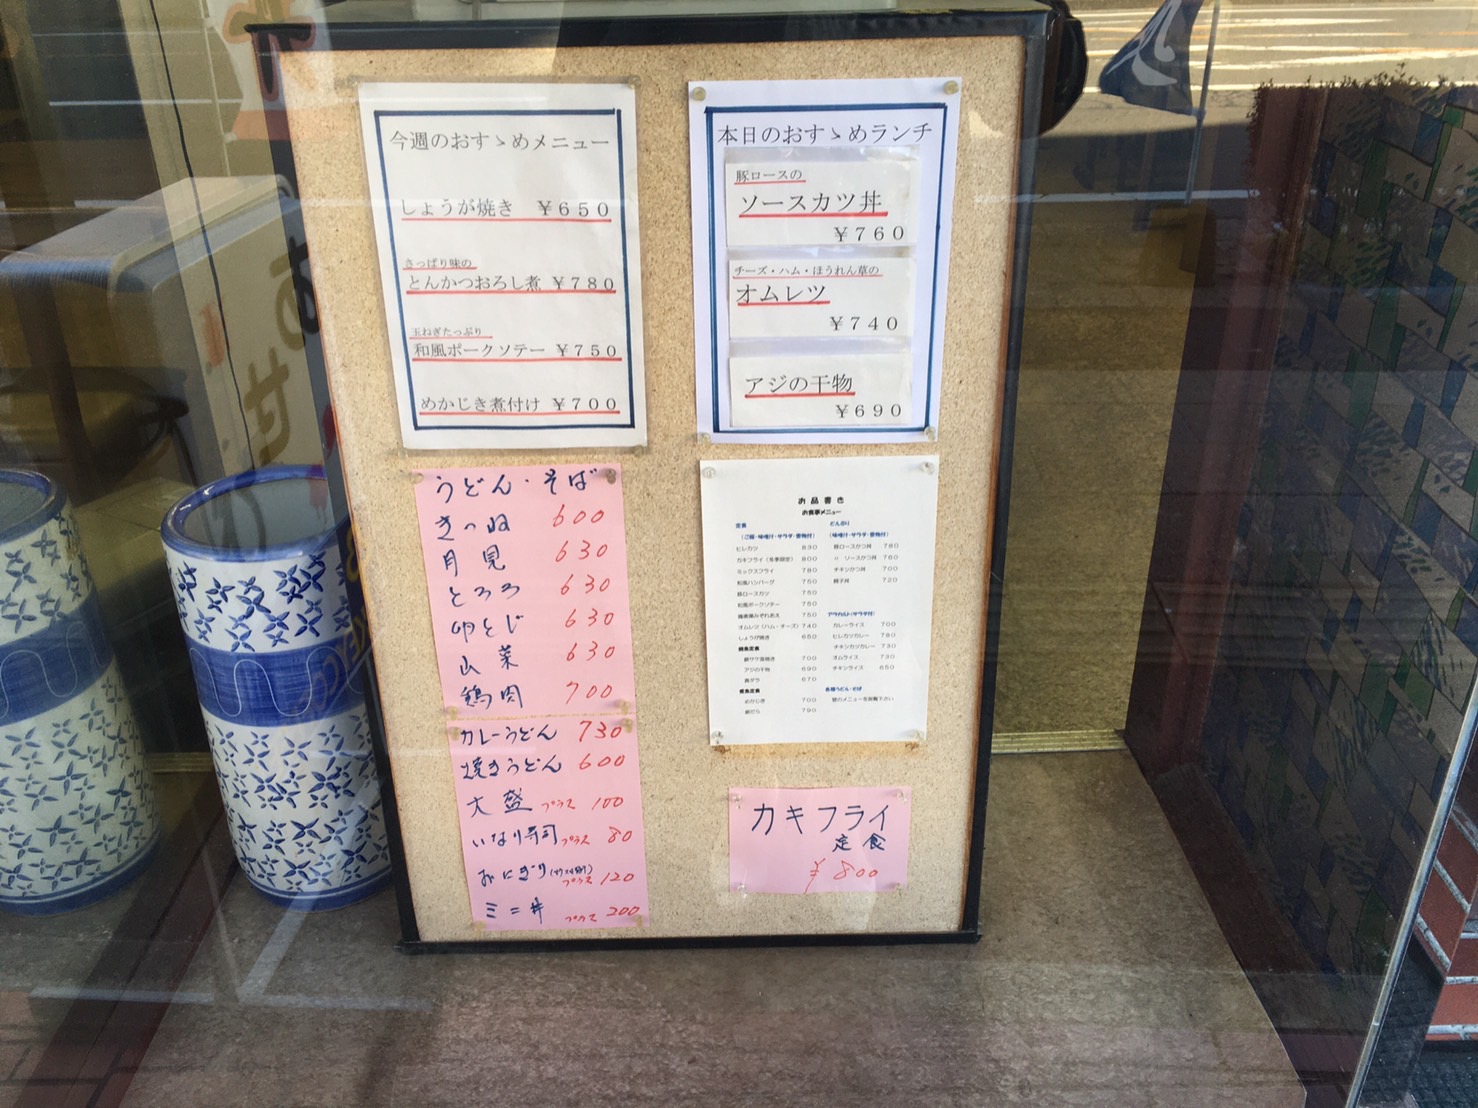 今週のおすゝめメニュー
しょうが焼き ￥650
さっぱり味の
とんかつおろし煮 ￥780
玉ねぎたっぷり
和風ポークソテー ￥750
めかじき煮付け ￥700
本日のおすゝめランチ
豚ロースの
ソースカツ丼
￥760
チーズ・ハム・ほうれん草の
オムレツ
￥740
アジの干物
￥690
うどん・そば
きつね 600
月見 630
とろろ 630
卵とじ 630
山菜 630
鶏肉 700
カレーうどん 730
焼きうどん 600
大盛 プラス 100
いなり寿司 プラス 80
おにぎり
プラス 120
ミニ丼 プラス 200
お品書き
お食事メニュー
定食
(ご飯・味噌汁・サラダ・香物付)
ヒレカツ 830
カキフライ(冬季限定) 800
ミックスフライ 780
和風ハンバーグ 750
豚ロースカツ 750
和風ポークソテー 750
750
オムレツ(ハム・チーズ) 740
しょうが焼き 650
焼魚定食
銀サケ塩焼き 700
アジの干物 690
670
煮魚定食
めかじき 700
790
どんぶり
(味噌汁・サラダ・香物付)
豚ロースかつ丼 780
〃 ソースかつ丼 760
チキンかつ丼 700
親子丼 720
アラカルト(サラダ付)
カレーライス 700
ヒレカツカレー 780
チキンカツカレー 730
オムライス 730
チキンライス 650
各種うどん・そば
壁のメニューを御覧下さい
カキフライ
定食
￥800